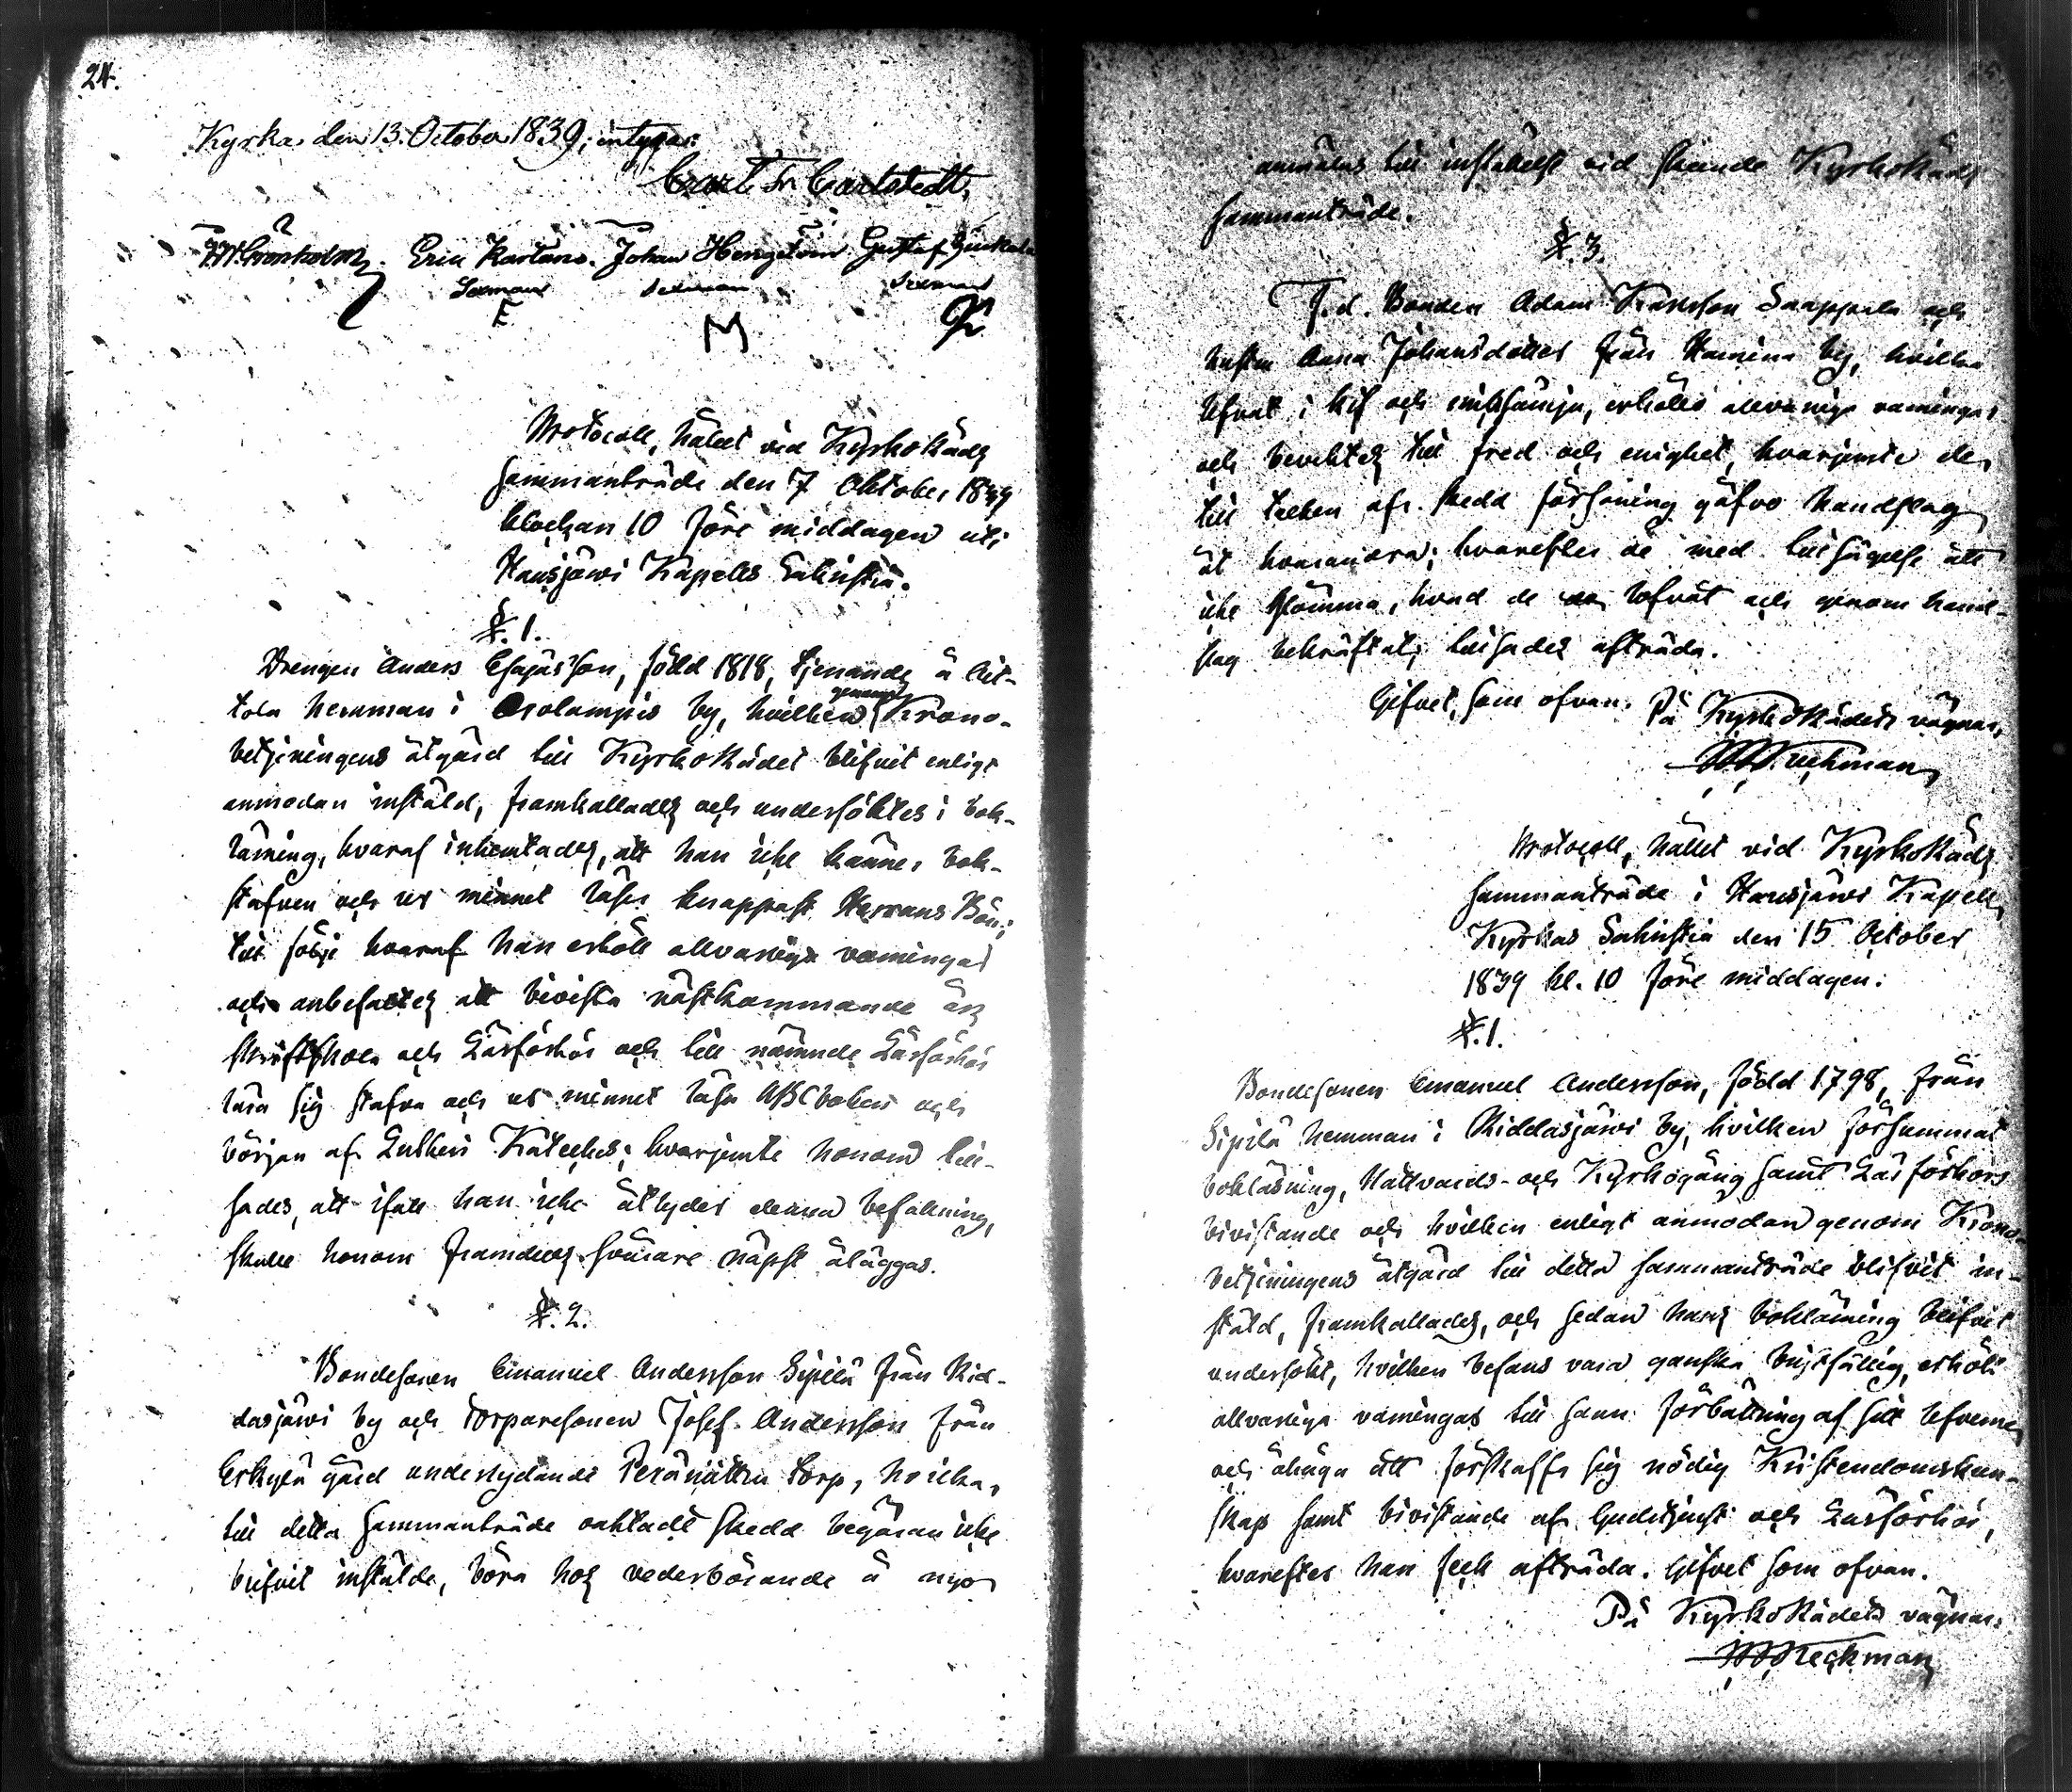 24.
Kyrka, den 13. October 1839; intygar:
Carl Fr Carlstedt,
Eric Kartano. Johan Hengström Gustaf
Sexman Sexman Sexman
E M
Protocoll, hållet vid KyrkoRåds
sammanträde den 7 Oktober 1839
klockan 10 före middagen uti
Hausjärvi Kapells Sakristia.
§. 1.
Drengen Anders Esajasson, född 1818, tjenande å Att-
tola hemman i Orolampis by, hvilken genom Krono-
betjeningens åtgärd till KyrkoRådet blifvit enligt
anmodan instäld, framkallades och undersöktes i bok-
läsning, hvaraf inhemtades, att han icke känner bok-
stafven och ur minnet läser knappast Herrans Bön;
till följe hvaraf han erhöll allvarliga varningar
och anbefaltes att bivista nästkommande års
skriftskola och Läsförhör och till nämnde Läsförhör
lära sig stafva och ur minnet läsa ABCboken och
början af Lutheri Kateches; hvarjemte honom till-
sades, att ifall han icke åtlyder denna befallning,
skulle honom framdeles svårare näpst åläggas.
§. 2.
Bondesonen Emanuel Andersson Sipilä från Rid-
dasjärvi by och Torparesonen Josef Andersson från
Erkylä gård underlydande Perämättu torp, hvilka,
till detta sammanträde oaktadt skedd begäran icke
blifvit instälde, böra hos vederbörande å nyo
anmälas till inställelse vid skeende KyrkoRåds
sammanträde.
§. 3.
F. d. Bonden Adam Karlsson Saappala och
hustru Anna Johansdotter från Hamina by, hvilka
lefvat i kif och misshämja, erhöllo allvarliga varningar
och bevektes till fred och enighet, hvarjemte de,
till tecken af skedd försoning gåfvo handslag
åt hvarandra; hvarefter de med tillsägelse att
icke glömma, hvad de lofvat och genom hand-
slag bekräftat, tillsades afträda.
Gifvet, som ofvan. På KyrkoRådets vägnar,
Protocoll, hållet vid KyrkoRåds
sammanträde i Hausjärvi Kapells
Kyrkas Sakristia den 15 October
1839 kl. 10 före middagen:
§. 1.
Bondesonen Emanuel Andersson, född 1798, från
Sipilä hemman i Riddasjärvi by, hvilken försummat
bokläsning, Nattvards- och Kyrkogång samt Läsförhörs
bivistande och hvilken enligt anmodan genom Krono-
betjeningens åtgärd till detta sammanträde blifvit in-
stäld, framkallades, och sedan hans bokläsning blifvit
undersökt, hvilken befans vara ganska bristfällig, erhöll
allvarliga varningar till sann förbättring af sitt lefverne
och åhåga att förskaffa sig nödig Kristendomskun-
skap samt bivistande af Gudstjenst och Läsförhör,
hvarefter han feck afträda. Gifvet som ofvan.
På KyrkoRådets vägnar: